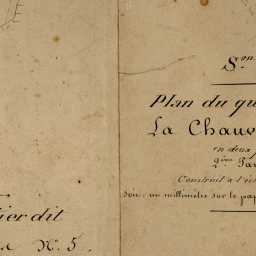 Son
Plan du qu
La Chauv
en deux
2ème Par
Construit à l'éc
soit, un millimètre sur le pap
ier dit
N° 5.